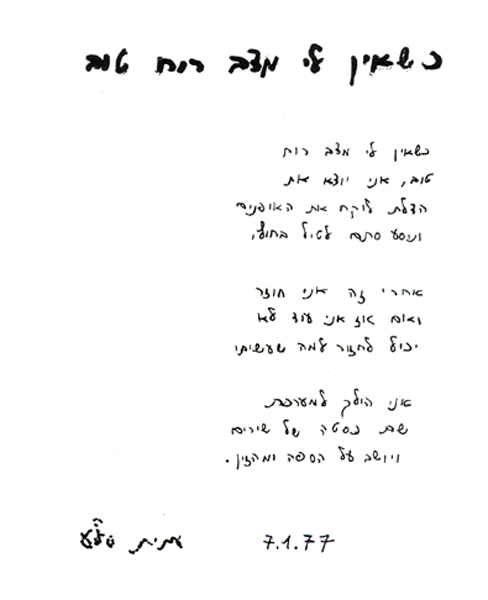 כשאין לי מצב רוח טוב
כשאין לי מצב רוח
טוב, אני יוצא את
הדלת לוקח את האופנים
ונוסע סתם לטיל בחוץ,
אחרי זה אני חוזר
ואום אז אני עוד לא
יכול לחזור למה שעשיתי
אני הולך למערכת
שם כסטה של שירים
ויושב על הספה ומהזין.
7.1.77